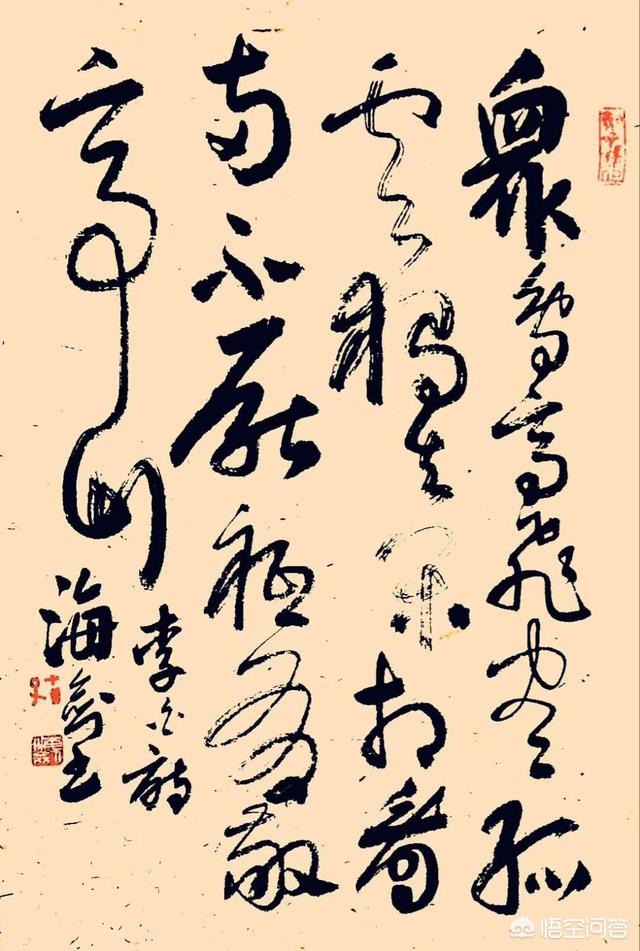 眾鳥高飛盡孤
雲獨去閑相看
兩不厭祗有敬
亭山
李白詩
海書
悟空问答